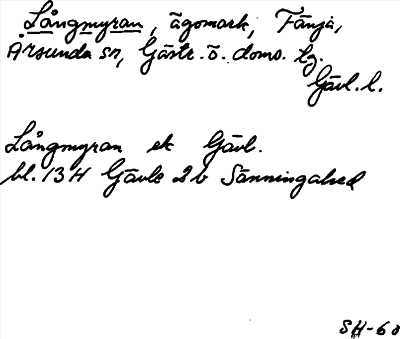 Långmyran, ägomark, Fänja,
Årsunda sn, Gästr. ö. doms. lg.
Gävl. l.
Långmyran ek Gävl.
bl. 13 H Gävle 2 b Sänningahed
SH-68